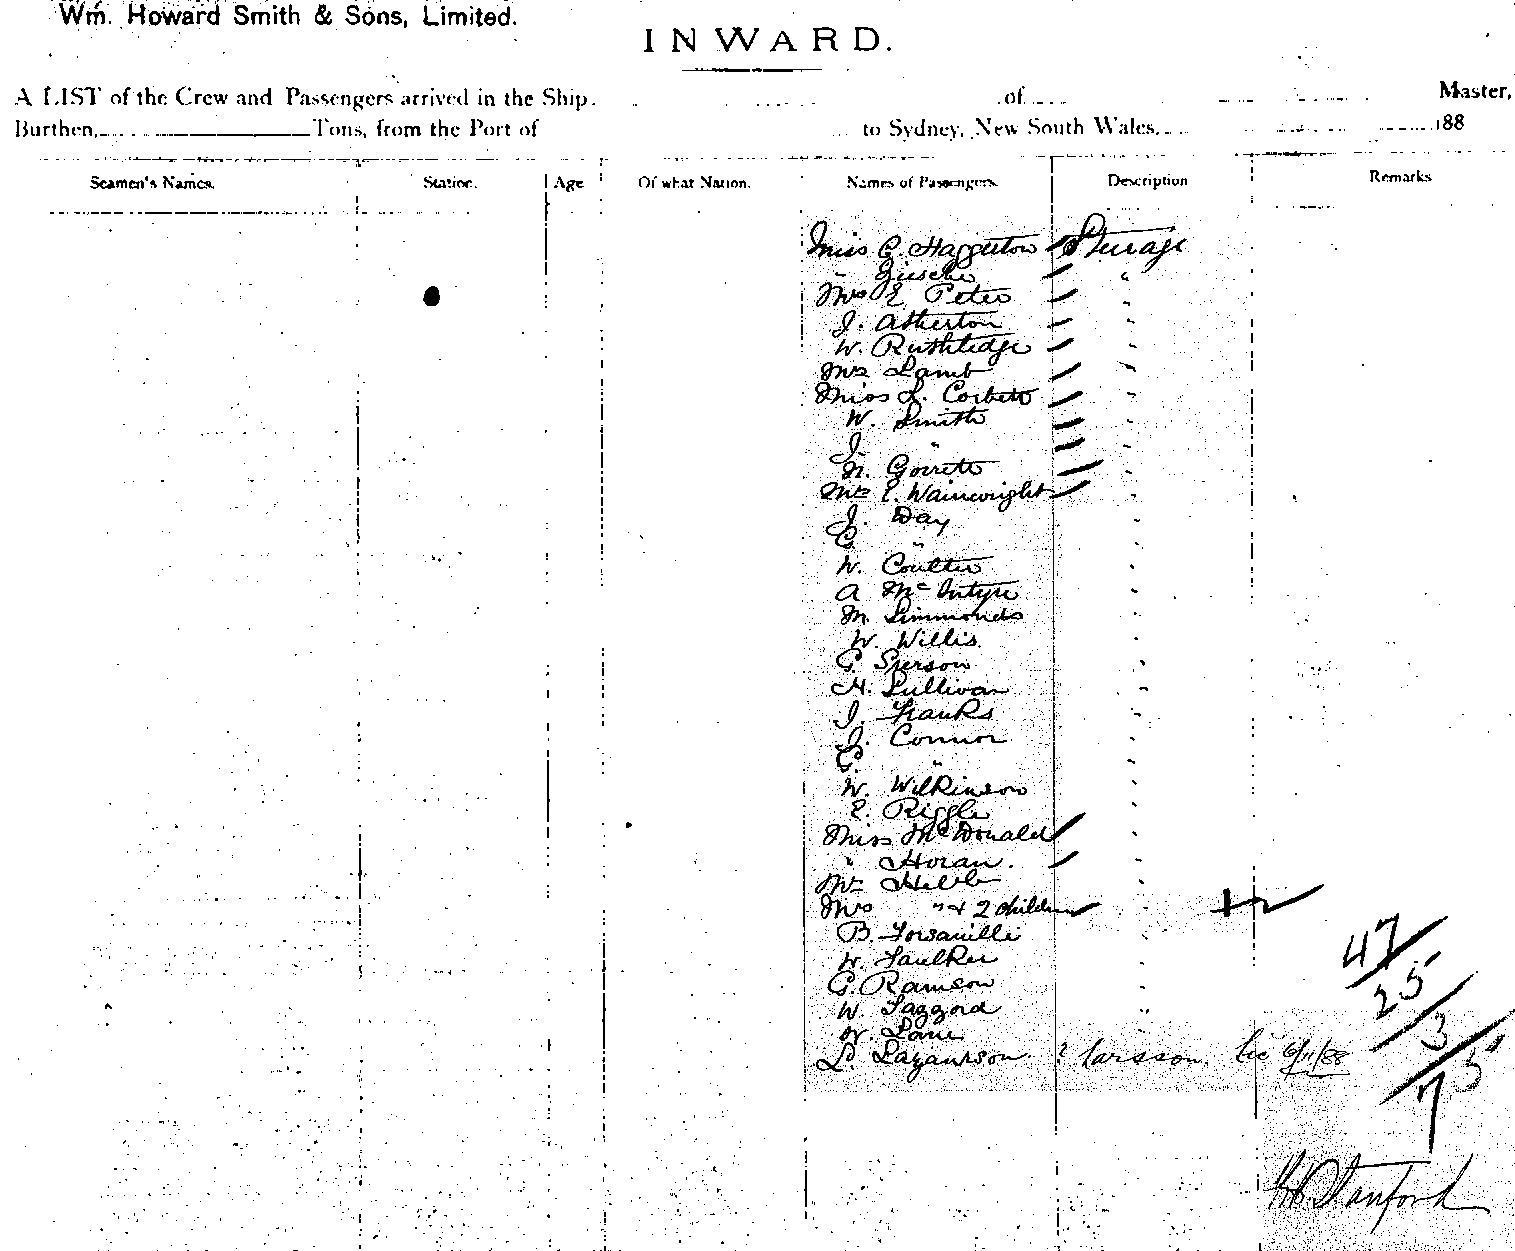 Wm. Howard Smith & Sons, Limited.
INWARD.
A LIST of the Crew and Passengers arrived in the Ship. of Master,
Burthen, Tons, from the Port of to Sydney, New South Wales, 188
Seamen's Names. Station. Age Of what Nation. Names of Passengers. Description Remarks
Miss C. Haggerton Steerage
" "
Mrs E Peter "
J. Atherton "
W. Ruthledge "
Mrs Lamb "
Miss L. Corbett "
W. Smith "
J. " "
N. Gorrett "
Mrs E. Wainwright "
J. Day "
G " "
W. Coulter "
A McIntyre "
M. Simmonds "
W. Willis "
G. Sperson "
H. Sullivan "
J. Franks "
J. Connor "
C. " "
W. Wilkinson "
E. Riggle "
Miss McDonald "
" Horan. "
Mr Hebb "
Mrs " & 2 children
B. "
W. Faulkner "
G. Ramson "
W. Laggord "
W. Lane "
L. Lazarusson. ? Larsson. 6/11/88
47
25
3
75
HB Stanford